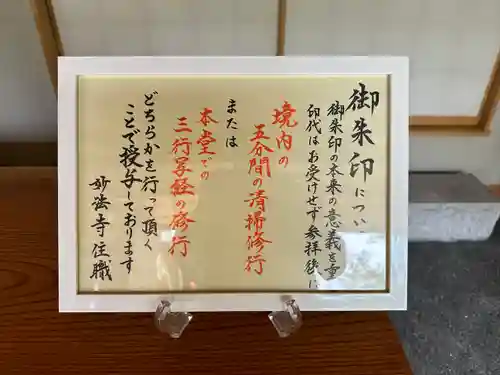 御朱印につい
御朱印の本来の意義を重
印代はお受けせず参拝後に
境内の
五分間の清掃修行
または
本堂での
三行写経の修行
どちらかを行って頂く
ことで授与しております
妙法寺住職